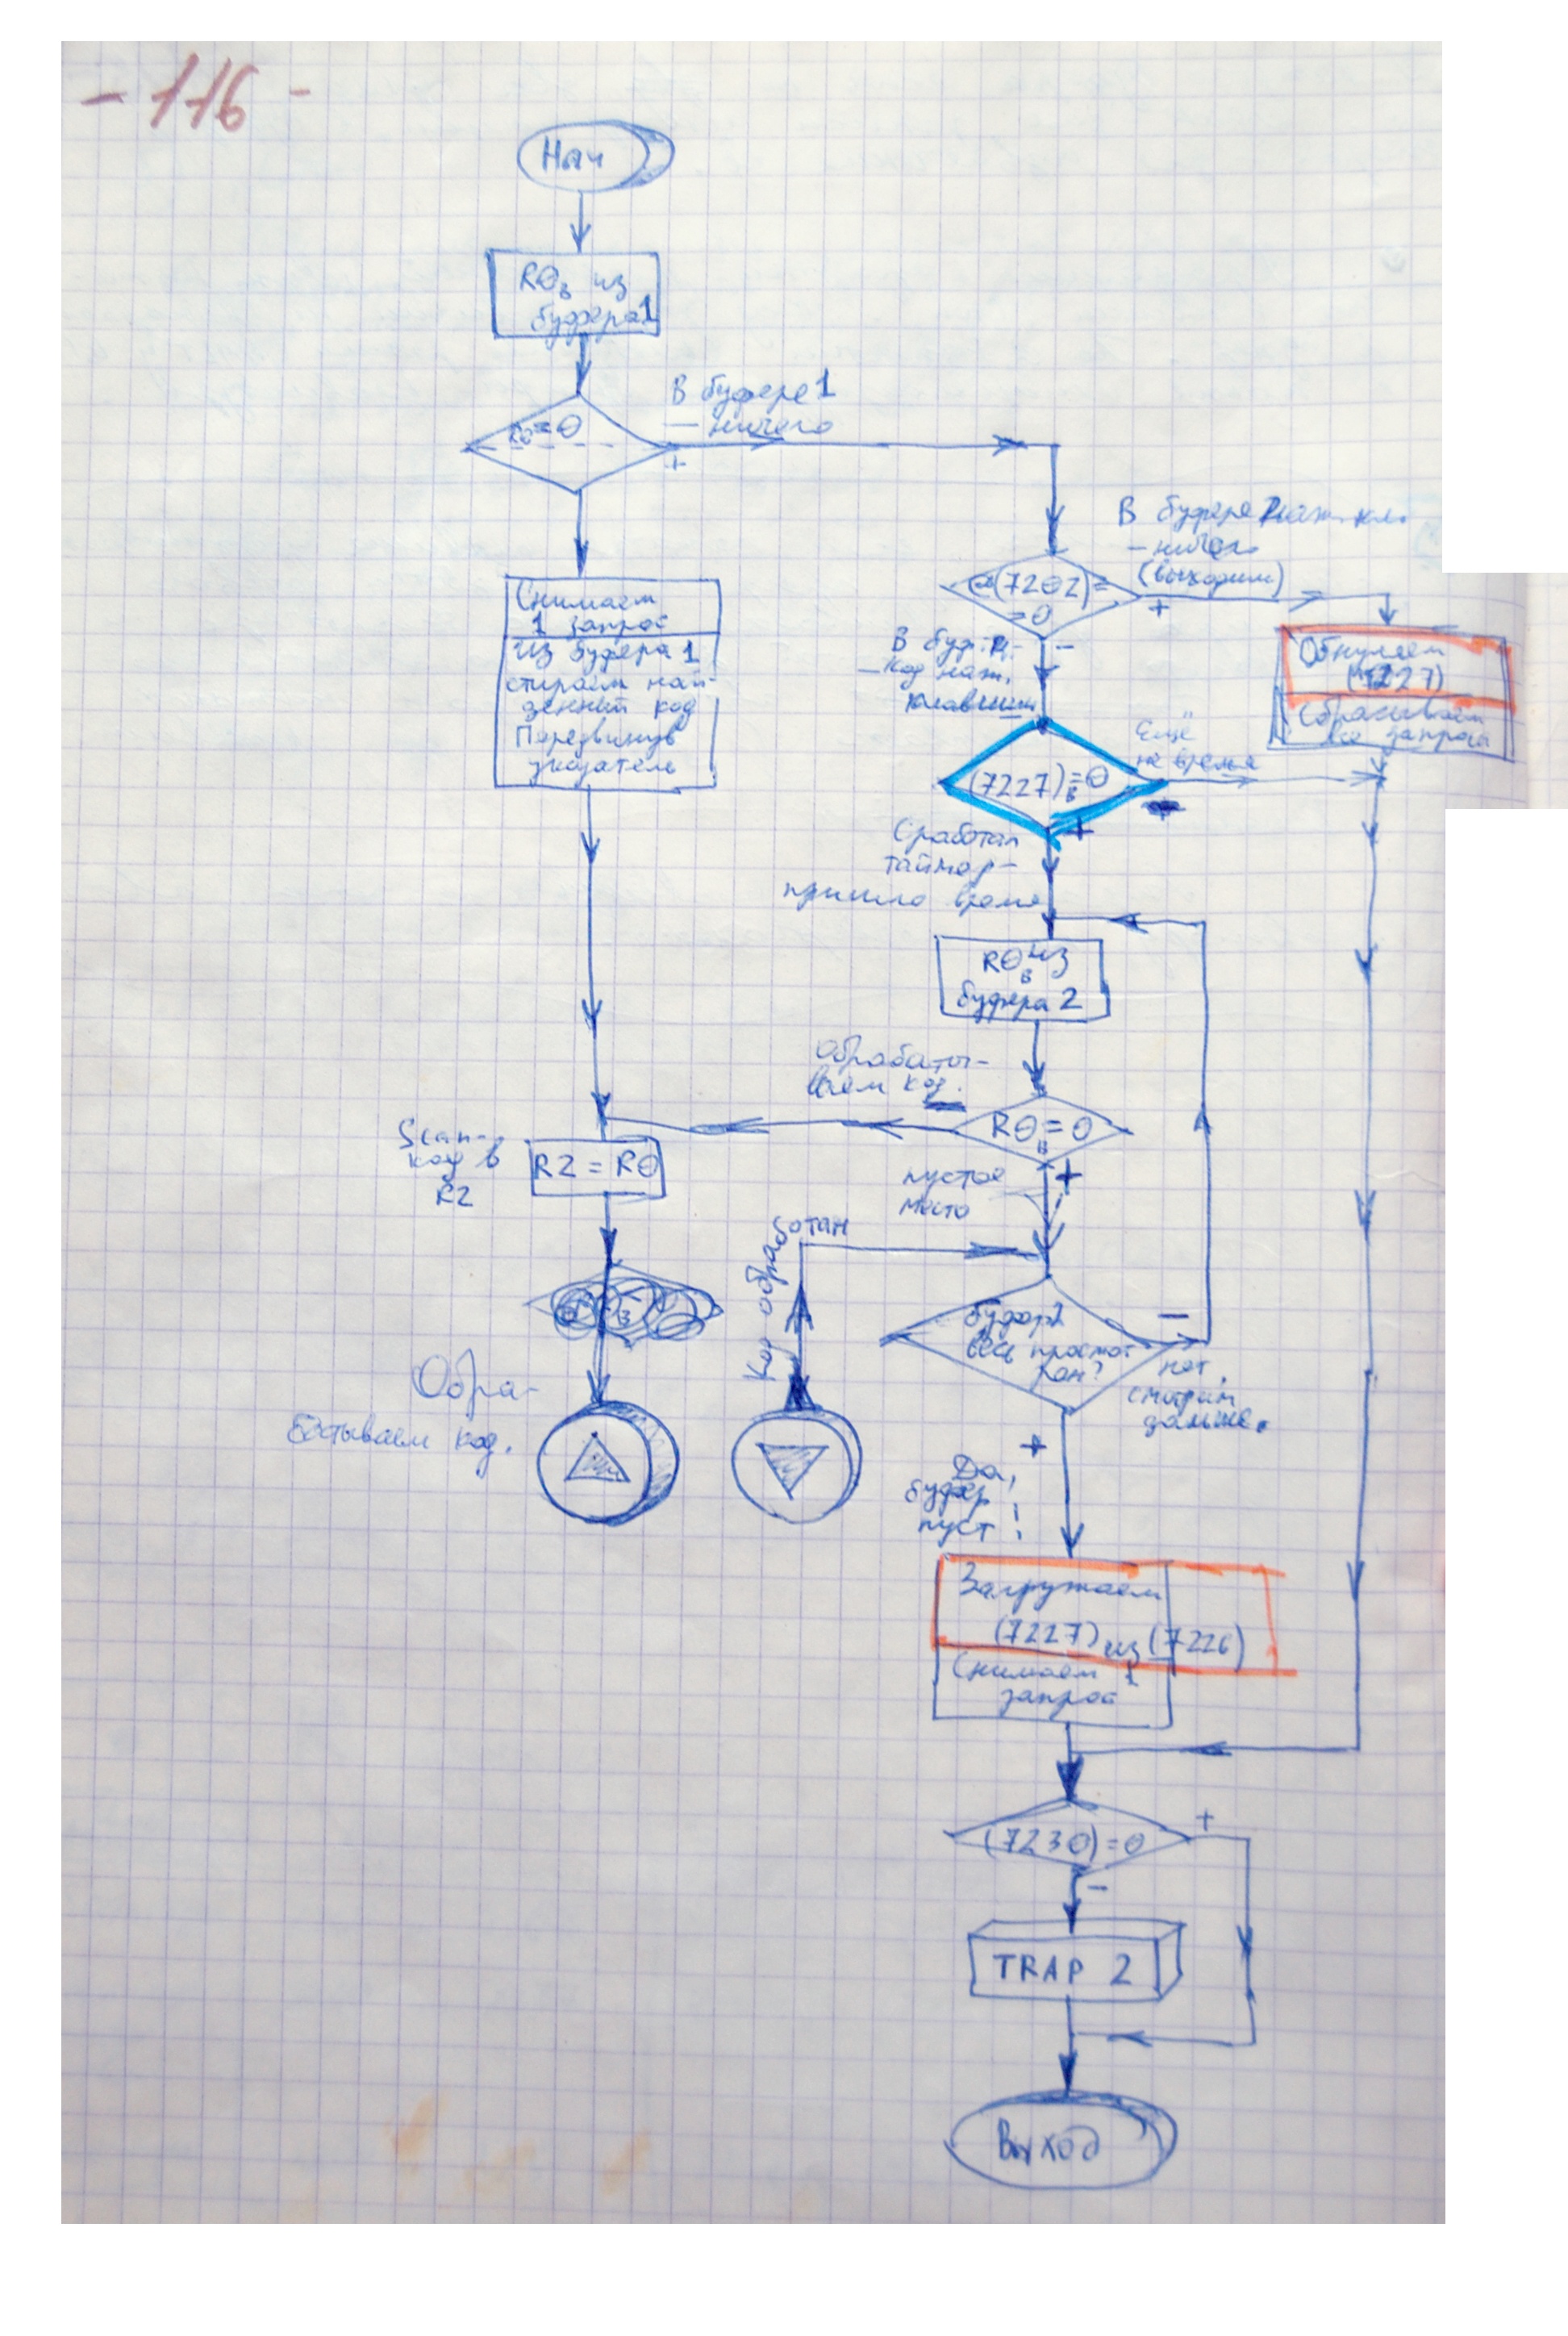 - 116 -
Нач
RΘв из
буфера 1
RΘ=Θ
В буфере 1
— ничего
+
Снимаем
1 запрос
из буфера 1
стираем най-
денный код
Передвинув
указатель
В буфере 2 наж. кл.
— ничего
(выходим)
(7202)=
=0
+
В буф. 2
— код наж.
клавиши
-
Обнуляем
(7227)
Сбрасываем
все запросы
(7227)в=Θ
Ещё
не время
-
+
Сработал
таймер —
пришло время
RΘв из
буфера 2
Обрабаты-
ваем код.
RΘв=0
+
пустое
место
Scan-
код в
R2
R2 = RΘ
Код обработан
буфер 2
весь просмот
рен?
-
нет,
смотрим
дальше.
Обра-
батываем код.
+
Да,
буфер
пуст!
Загружаем
(7227) из (7226)
Снимаем 1
запрос
(7230)=0
+
-
TRAP 2
Выход